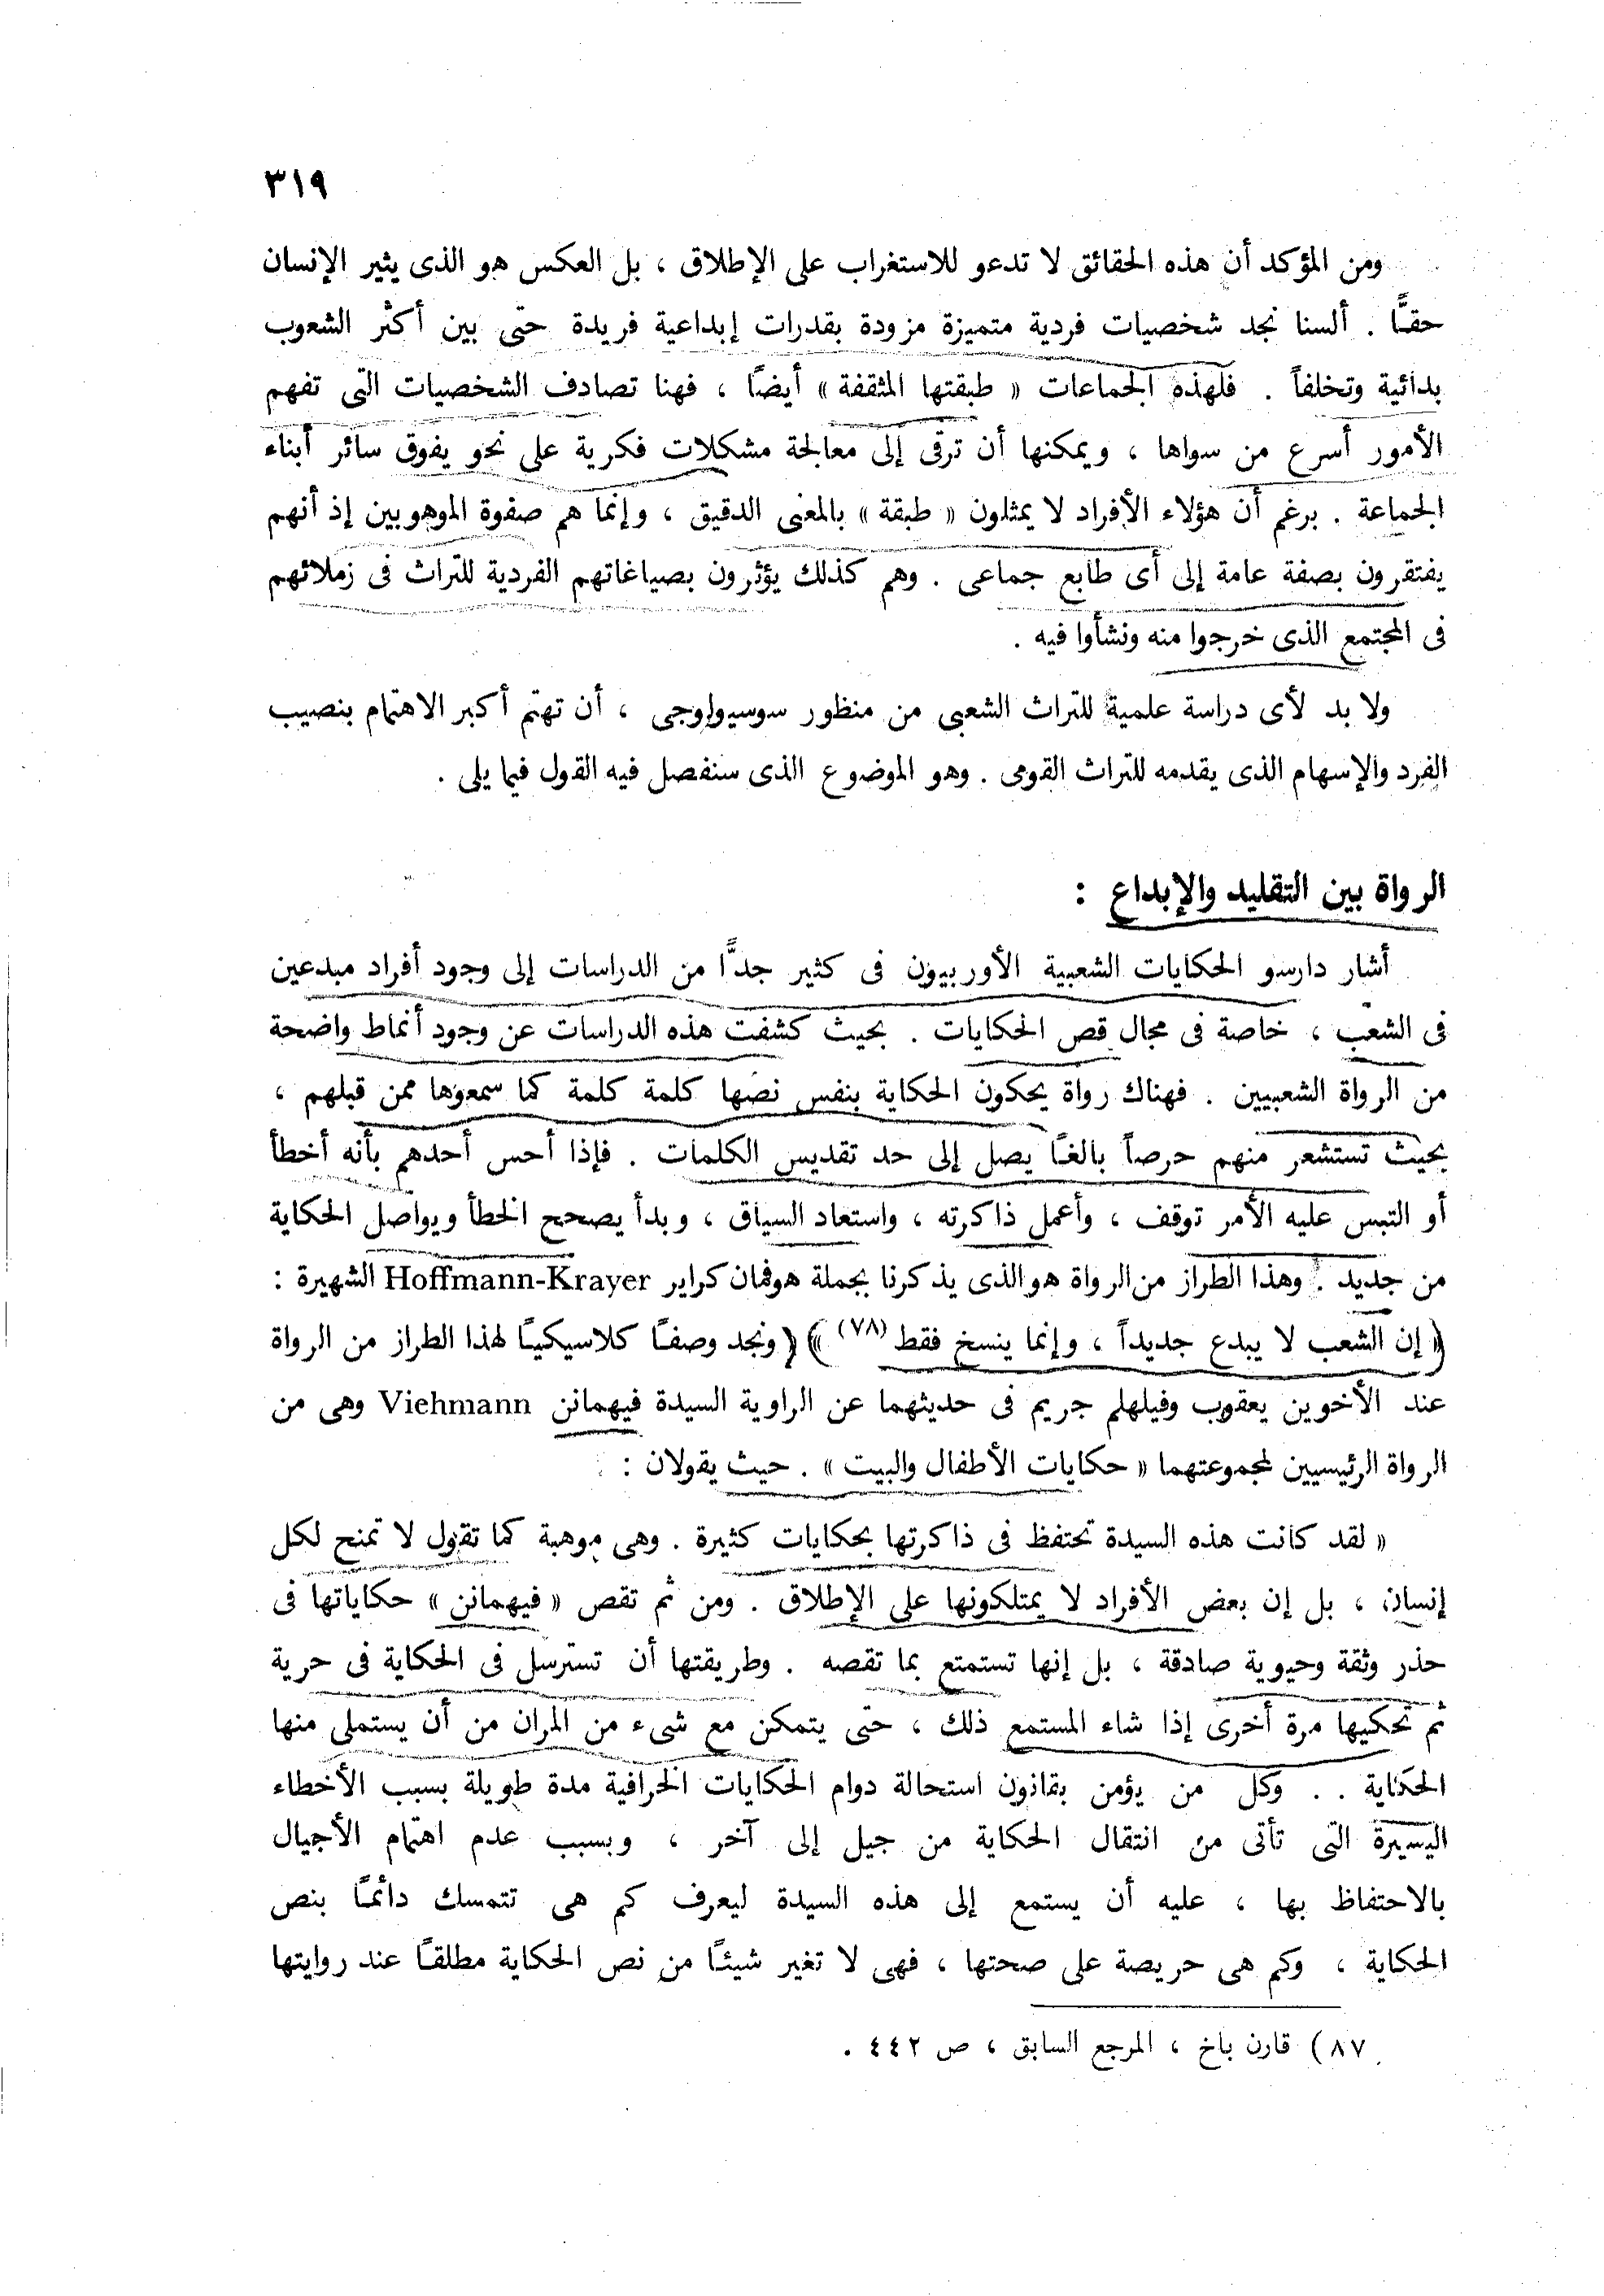 ٣١٩
ومن المؤكد أن هذه الحقائق لا تدعو للاستغراب على الإطلاق ، بل العكس هو الذى يثير الإنسان
حقًّا . ألسنا نجد شخصيات فردية متميزة مزودة بقدرات إبداعية فريدة حتى بين أكثر الشعوب
بدائية وتخلفاً . فلهذه الجماعات « طبقتها المثقفة » أيضًا ، فهنا تصادف الشخصيات التى تفهم
الأمور أسرع من سواها ، ويمكنها أن ترقى إلى معالجة مشكلات فكرية على نحو يفوق سائر أبناء
الجماعة . برغم أن هؤلاء الأفراد لا يمثلون « طبقة » بالمعنى الدقيق ، وإنما هم صفوة الموهوبين إذ أنهم
يفتقرون بصفة عامة إلى أى طابع جماعى . وهم كذلك يؤثرون بصياغاتهم الفردية للتراث فى زملائهم
فى المجتمع الذى خرجوا منه ونشأوا فيه .
ولا بد لأى دراسة علمية للتراث الشعبى من منظور سوسيولوجى ، أن تهتم أكبر الاهتمام بنصيب
الفرد والإسهام الذى يقدمه للتراث القومى . وهو الموضوع الذى سنفصل فيه القول فيما يلى .
الرواة بين التقليد والإبداع :
أشار دارسو الحكايات الشعبية الأوربيون فى كثير جدًّا من الدراسات إلى وجود أفراد مبدعين
فى الشعب ، خاصة فى مجال قص الحكايات . بحيث كشفت هذه الدراسات عن وجود أنماط واضحة
من الرواة الشعبيين . فهناك رواة يحكون الحكاية بنفس نصها كلمة كلمة كما سمعوها ممن قبلهم ،
بحيث تستشعر منهم حرصاً بالغًا يصل إلى حد تقديس الكلمات . فإذا أحس أحدهم بأنه أخطأ
أو التبس عليه الأمر توقف ، وأعمل ذاكرته ، واستعاد السياق ، وبدأ يصحح الخطأ ويواصل الحكاية
من جديد . وهذا الطراز من الرواة هو الذى يذكرنا بجملة هوفمان كراير Hoffmann-Krayer الشهيرة :
« إن الشعب لا يبدع جديداً ، وإنما ينسخ فقط (٧٨) » ونجد وصفًا كلاسيكيًا لهذا الطراز من الرواة
عند الأخوين يعقوب وفيلهلم جريم فى حديثهما عن الراوية السيدة فيهمانن Viehmann وهى من
الرواة الرئيسيين لمجموعتهما « حكايات الأطفال والبيت » . حيث يقولان :
« لقد كانت هذه السيدة تحتفظ فى ذاكرتها بحكايات كثيرة . وهى موهبة كما تقول لا تمنح لكل
إنسان ، بل إن بعض الأفراد لا يمتلكونها على الإطلاق . ومن ثم تقص « فيهمانن » حكاياتها فى
حذر وثقة وحيوية صادقة ، بل إنها تستمتع بما تقصه . وطريقتها أن تسترسل فى الحكاية فى حرية
ثم تحكيها مرة أخرى إذا شاء المستمع ذلك ، حتى يتمكن مع شىء من المران من أن يستملى منها
الحكاية . . وكل من يؤمن بقانون استحالة دوام الحكايات الخرافية مدة طويلة بسبب الأخطاء
اليسيرة التى تأتى من انتقال الحكاية من جيل إلى آخر ، وبسبب عدم اهتمام الأجيال
بالاحتفاظ بها ، عليه أن يستمع إلى هذه السيدة ليعرف كم هى تتمسك دائمًا بنص
الحكاية ، وكم هى حريصة على صحتها ، فهى لا تغير شيئًا من نص الحكاية مطلقًا عند روايتها
٨٧ ) قارن باخ ، المرجع السابق ، ص ٤٤٢ .